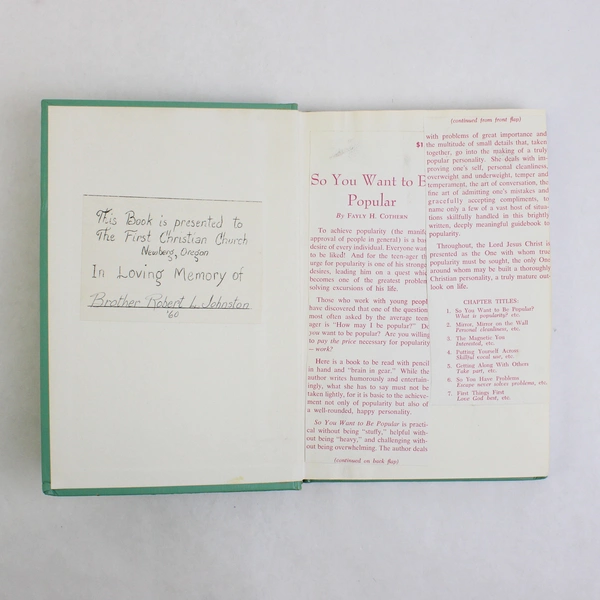 This Book is presented to
The First Christian Church
Newberg, Oregon
In Loving Memory of
Brother Robert L. Johnston
'60
$1
So You Want to B
Popular
By Fayly H. Cothern
To achieve popularity (the manife
approval of people in general) is a ba
desire of every individual. Everyone wan
to be liked! And for the teen-ager th
urge for popularity is one of his stronge
desires, leading him on a quest whic
becomes one of the greatest problem
solving excursions of his life.
Those who work with young peopl
have discovered that one of the question
most often asked by the average teen
ager is "How may I be popular?" Do
you want to be popular? Are you willing
to pay the price necessary for popularity
— work?
Here is a book to be read with pencil
in hand and "brain in gear." While the
author writes humorously and entertain-
ingly, what she has to say must not be
taken lightly, for it is basic to the achieve-
ment not only of popularity but also of
a well-rounded, happy personality.
So You Want to Be Popular is practi-
cal without being "stuffy," helpful with-
out being "heavy," and challenging with-
out being overwhelming. The author deals
(continued on back flap)
(continued from front flap)
with problems of great importance and
the multitude of small details that, taken
together, go into the making of a truly
popular personality. She deals with im-
proving one's self, personal cleanliness,
overweight and underweight, temper and
temperament, the art of conversation, the
fine art of admitting one's mistakes and
gracefully accepting compliments, to
name only a few of a vast host of situa-
tions skillfully handled in this brightly
written, deeply meaningful guidebook to
popularity.
Throughout, the Lord Jesus Christ is
presented as the One with whom true
popularity must be sought, the only One
around whom may be built a thoroughly
Christian personality, a truly mature out-
look on life.
CHAPTER TITLES:
1. So You Want to Be Popular?
What is popularity? etc.
2. Mirror, Mirror on the Wall
Personal cleanliness, etc.
3. The Magnetic You
Interested, etc.
4. Putting Yourself Across
Skilful vocal use, etc.
5. Getting Along With Others
Take part, etc.
6. So You Have Problems
Escape never solves problems, etc.
7. First Things First
Love God best, etc.